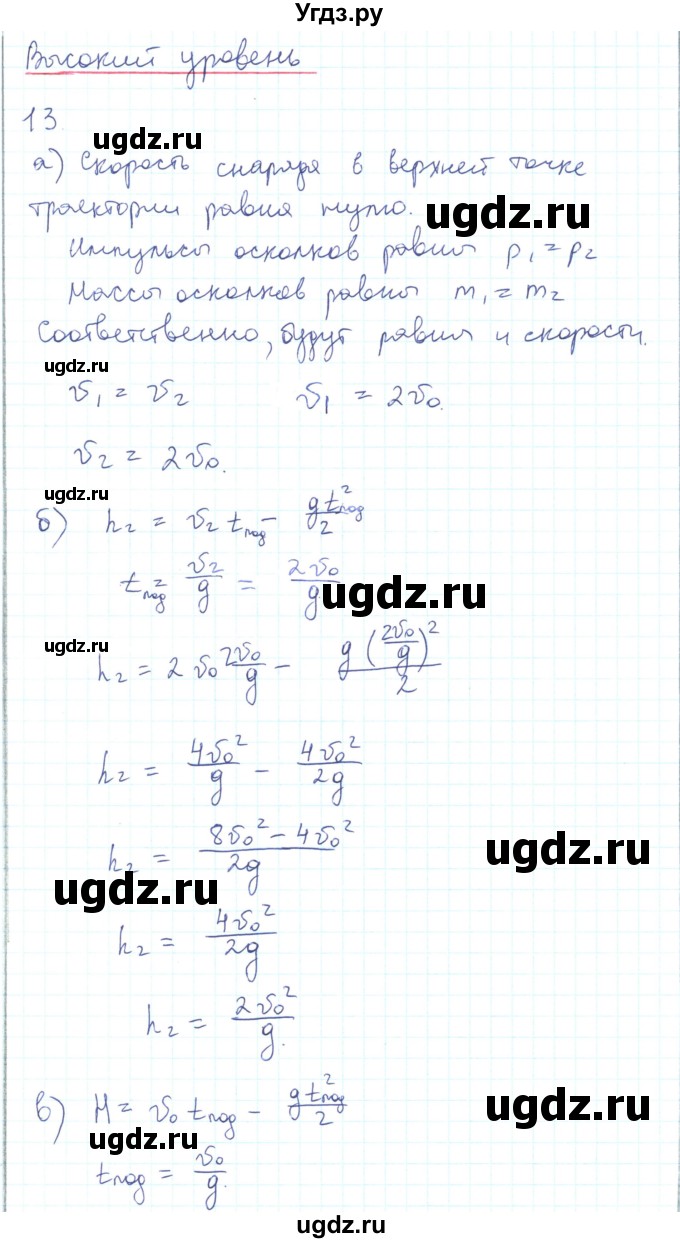 Угдз.ру
Высокий уровень
13
ugdz.ru
а) Скорость снаряда в верхней точке
траектории равна нулю.
ugdz.ru
Импульсы осколков равны p₁ = p₂
Массы осколков равны m₁ = m₂
Соответственно, будут равны и скорости.
ugdz.ru
v₁ = v₂ v₁ = 2v₀.
v₂ = 2v₀.
ugdz.ru
б) h₂ = v₂ tпод - gtпод²/2
tпод = v₂/g = 2v₀/g
ugdz.ru
ugdz.ru
h₂ = 2v₀ 2v₀/g - g(2v₀/g)²/2
h₂ = 4v₀²/g - 4v₀²/2g
h₂ = 8v₀² - 4v₀²/2g
ugdz.ru
ugdz.ru
h₂ = 4v₀²/2g
h₂ = 2v₀²/g.
в) H = v₀ tпод - gtпод²/2
ugdz.ru
ugdz.ru
tпод = v₀/g.
ugdz.ru